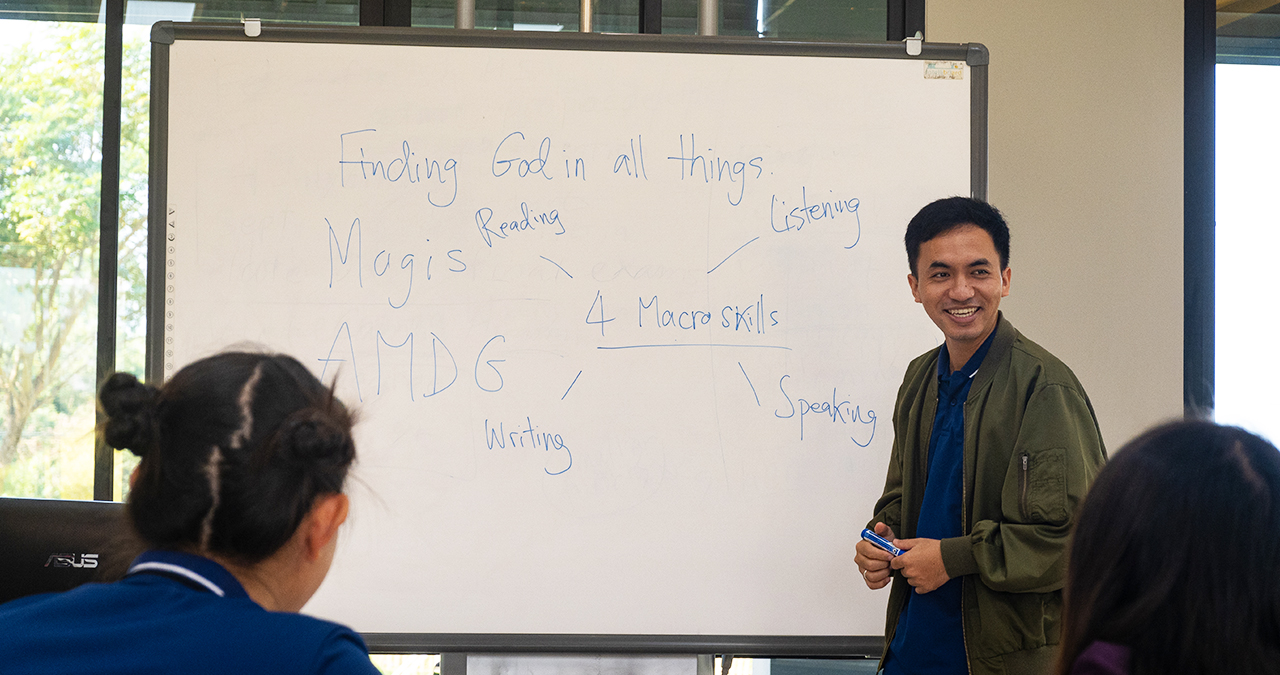 Finding God in all things.
Reading
Listening
Magis
4 Macroskills
AMDG
Writing
Speaking
ASUS